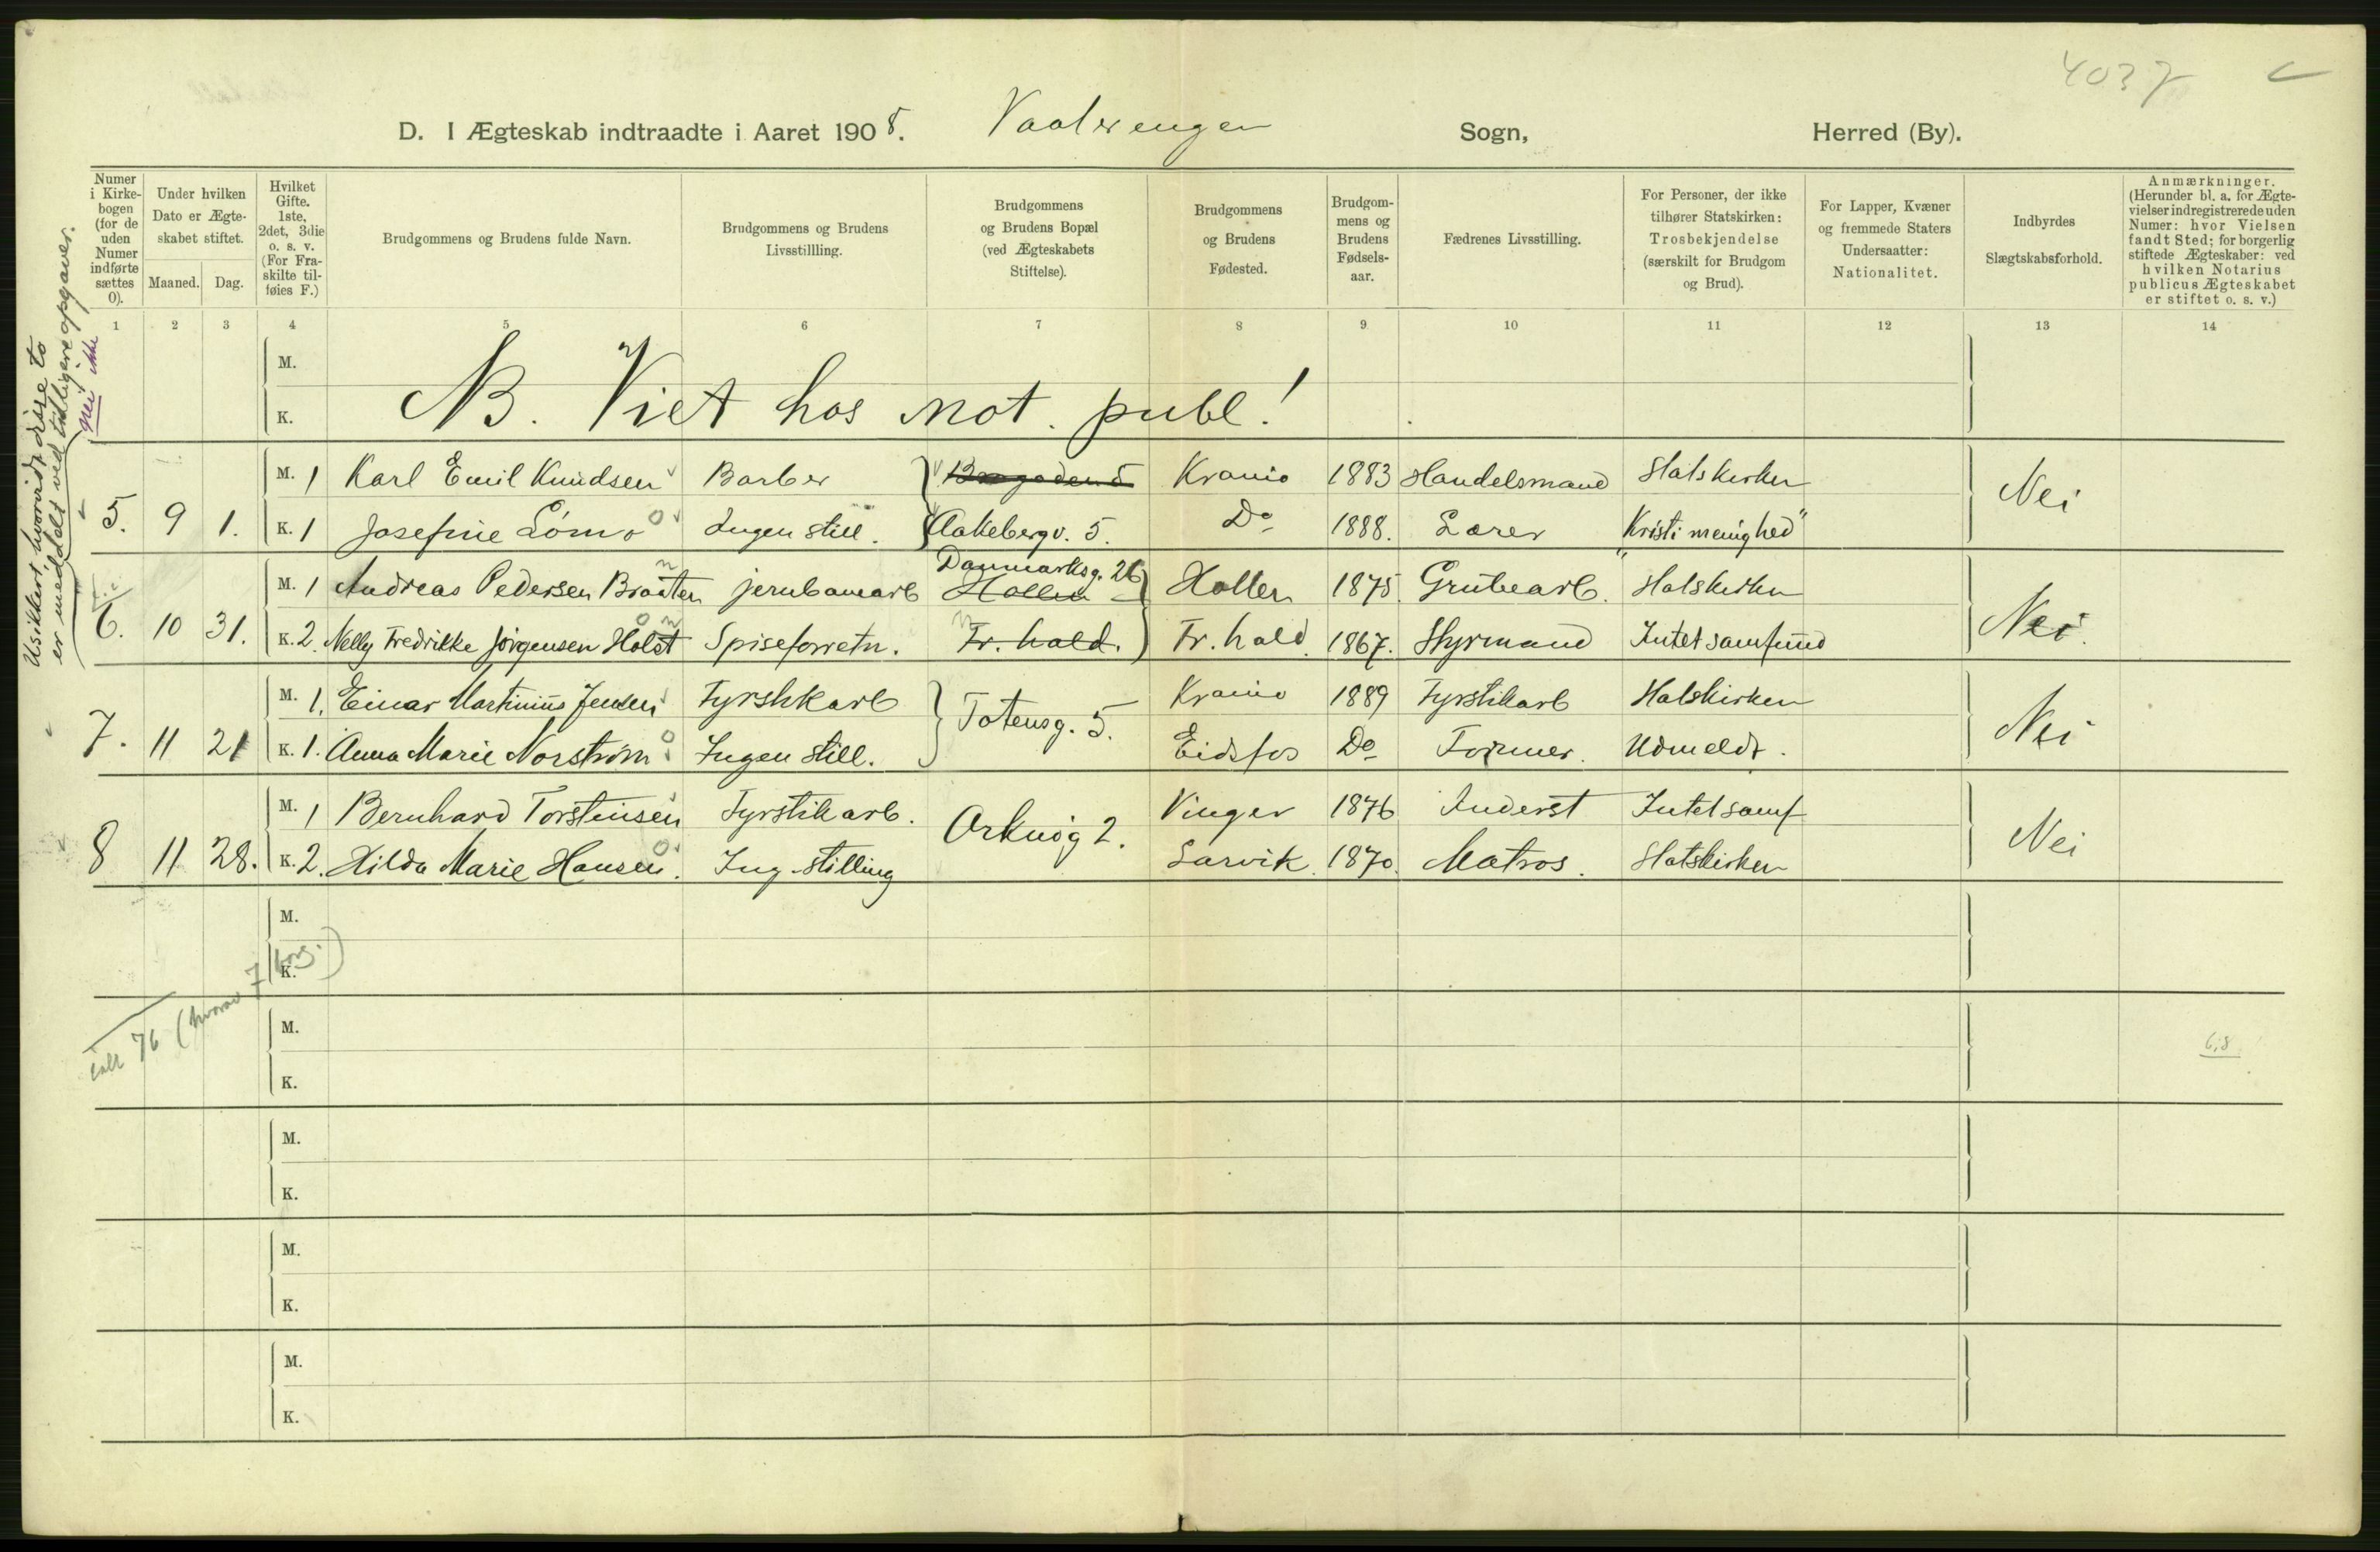 4037
D. I Ægteskab indtraadte i Aaret 1908. Vaalerengen Sogn, Herred (By).
Numer i Kirke-bogen (for de uden Numer indførte sættes 0).
Under hvilken Dato er Ægte-skabet stiftet.
Maaned. Dag.
Hvilket Gifte. 1ste, 2det, 3die o. s. v. (For Fra-skilte til-føies F.)
Brudgommens og Brudens fulde Navn.
Brudgommens og Brudens Livsstillling.
Brudgommens og Brudens Bopæl (ved Ægteskabets Stiftelse).
Brudgommens og Brudens Fødested.
Brudgom-mens og Brudens Fødsels-aar.
Fædrenes Livsstilling.
For Personer, der ikke tilhører Statskirken: Trosbekjendelse (særskilt for Brudgom og Brud).
For Lapper, Kvæner og fremmede Staters Undersaatter: Nationalitet.
Indbyrdes Slægtskabsforhold.
Anmærkninger. (Herunder bl. a. for Ægte-vielser indregistrerede uden Numer: hvor Vielsen fandt Sted; for borgerlig stiftede Ægteskaber: ved hvilken Notarius publicus Ægteskabet er stiftet o. s. v.)
1 2 3 4 5 6 7 8 9 10 11 12 13 14
M.
K. NB. Viet hos not. publ!
M. 1 Karl Emil Knudsen Barber Krania 1883 Handelsmand Statskirken
5. 9 1. Nei
K. 1 Josefine Lømo Ingen still. Aakebergv. 5. Do 1888. Lærer "Kristi menighed"
Danmarksg. 26
M. 1 Andreas Pedersen Braaten jernbanearb Hollen Hollen 1875 Grubearb. Statskirken
6. 10 31. Nei.
K. 2. Nelly Fredrikke Jørgensen Holst Spiseforretn. Fr. hald. Fr. hald. 1867. Styrmand Intet samfund
M. 1. Einar Martinius Jensen Fyrstikarb Krania 1889 Fyrstikarb Statskirken
7. 11 21 Totensg. 5. Nei
K. 1. Anna Marie Norstrøm Ingen still. Eidsfos Do Former. Udmeldt.
M. 1 Bernhard Torstensen Fyrstikarb. Vinger 1876 Inderst Intet samf
8 11 28. Nei
K. 2. Hilda Marie Hansen. Ing. stilling Larvik 1870. Matros. Statskirken
M.
K.
M.
K.
M.
K.
M.
K.
M.
K.
Usikkert, hvorvidt disse to
er meddelt ved tidligere opgaver.
nei ikke
ialt 76 (hvorav 7 borg.)
6,8